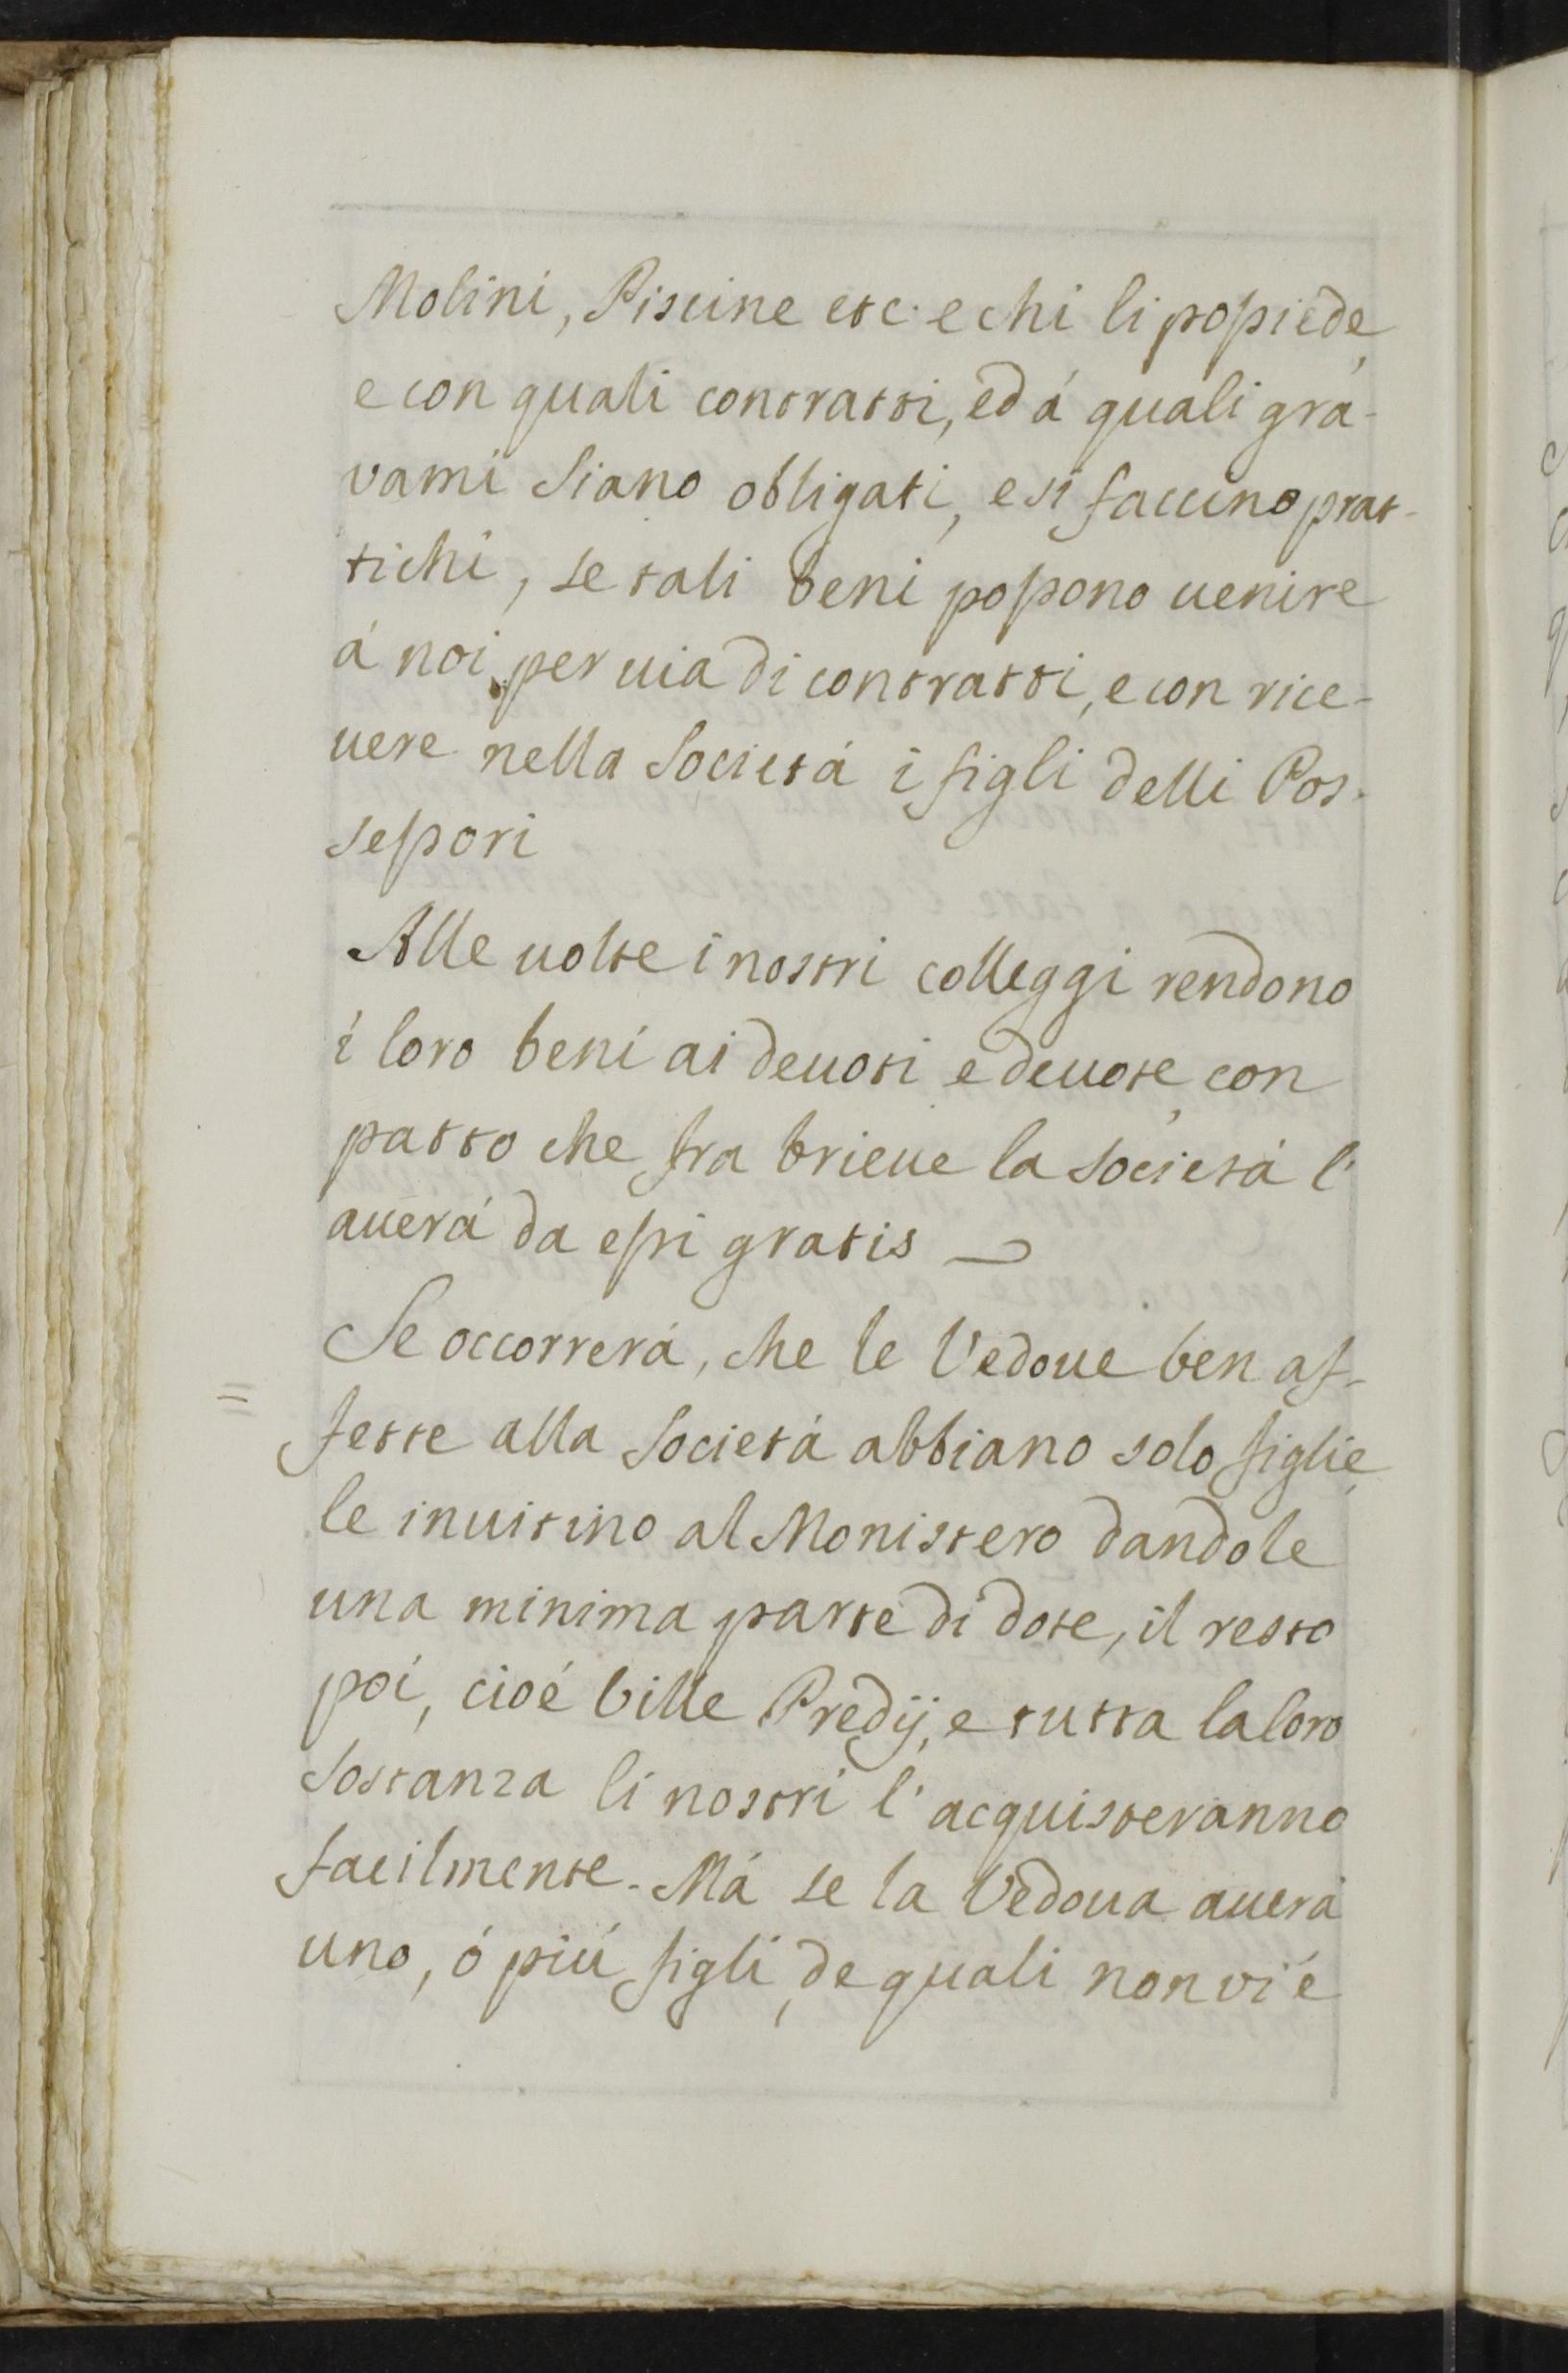 Molini, Piscine etc. e chi li possiede,
e con quali contratti, ed á quali gra-
vami siano obligati, e si faccino prat-
tichi, se tali beni possono uenire
á noi per uia di contratti, e con rice-
uere nella Societá i figli delli Pos-
sessori
Alle uolte i nostri colleggi rendono
i loro beni ai deuoti e deuote, con
patto che fra brieue la Societá l'
auerá da essi gratis
Se occorrerá, che le Vedoue ben af-
fette alla Societá abbiano solo figlie,
le inuitino al Monistero dandole
una minima parte di dote, il resto
poi, cioé Ville Predij, e tutta la loro
Sostanza li nostri l' acquisteranno
facilmente. Má se la Vedoua auerá
uno, ó piú figli, de quali non vi é